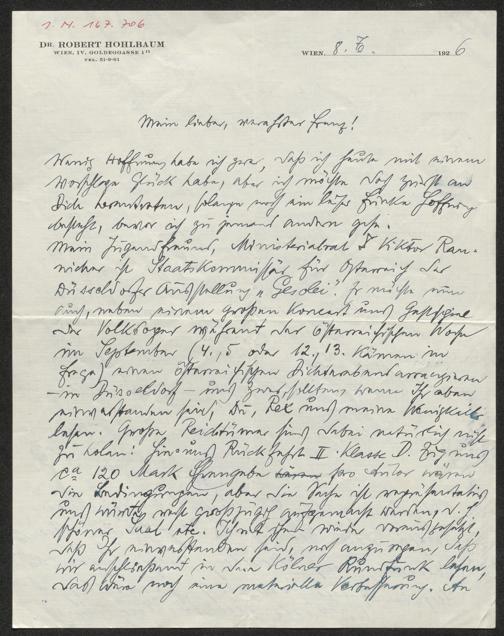 J. N. 167.706
DR. ROBERT HOHLBAUM
WIEN, IV. GOLDEGGASSE 1
TEL. 51-9-61
WIEN, 8. 7. 1926
Mein lieber, verehrter Franz!
Wenig Hoffnung habe ich zwar, daß ich heute mit einem
Vorschlage Glück habe, aber ich möchte doch zuerst an
Dich herantreten, solange noch ein leiser Funke Hoffnung
besteht, bevor ich zu jemand andern gehe.
Mein Jugendfreund, Ministerialrat Dr Viktor
ist Staatskommissär für Österreich der
Düsseldorfer Ausstellung „Gesolei". Er möchte nun
auch, neben einem großen Konzert und Gastspiel
der Volksoper während der österreichischen Woche
im September (4., 5 oder 12., 13. kämen in
Frage) einen österreichischen Dichterabend arrangieren
– in Düsseldorf – und zwar sollten, wenn Ihr eben
einverstanden seid, Du, Rex und meine Wenigkeit
lesen. Große Reichtümer sind dabei natürlich nicht
zu holen: Hin- und Rückfahrt II. Klasse D. Zug und
ca 120 Mark Ehrengabe pro Autor wären
die Bedingungen, aber die Sache ist repräsentativ
und würde recht großzügig aufgemacht werden, d. h.
schöner Saal etc. Ich will ihm wieder, vorausgesetzt,
daß Ihr einverstanden seid, noch anzuregen, daß
wir anschließend in dem Kölner Rundfunk lesen,
das wäre noch eine materielle Verbesserung. An